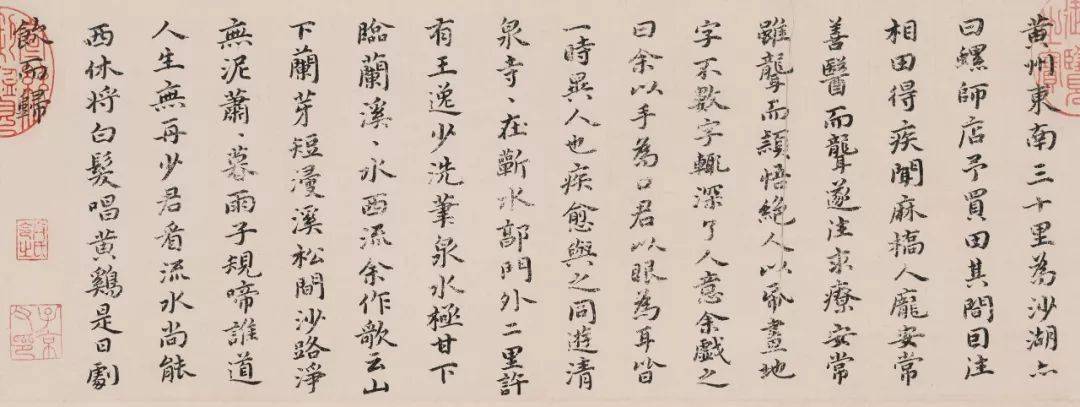 黄州東南三十里為沙湖亦
曰螺師店予買田其間因往
相田得疾聞麻橋人龐安常
善醫而聾遂往求療安常
雖聾而穎悟絶人以帋畫地
字不數字輒深了人意余戲之
曰余以手為口君以眼為耳皆
一時異人也疾愈與之同遊清
泉寺、在蘄水郭門外二里許
有王逸少洗筆泉水極甘下
臨蘭溪、水西流余作歌云山
下蘭芽短浸溪松間沙路淨
無泥蕭、暮雨子規啼誰道
人生無再少君看流水尚能
西休将白髮唱黄鷄是日劇
飲而歸